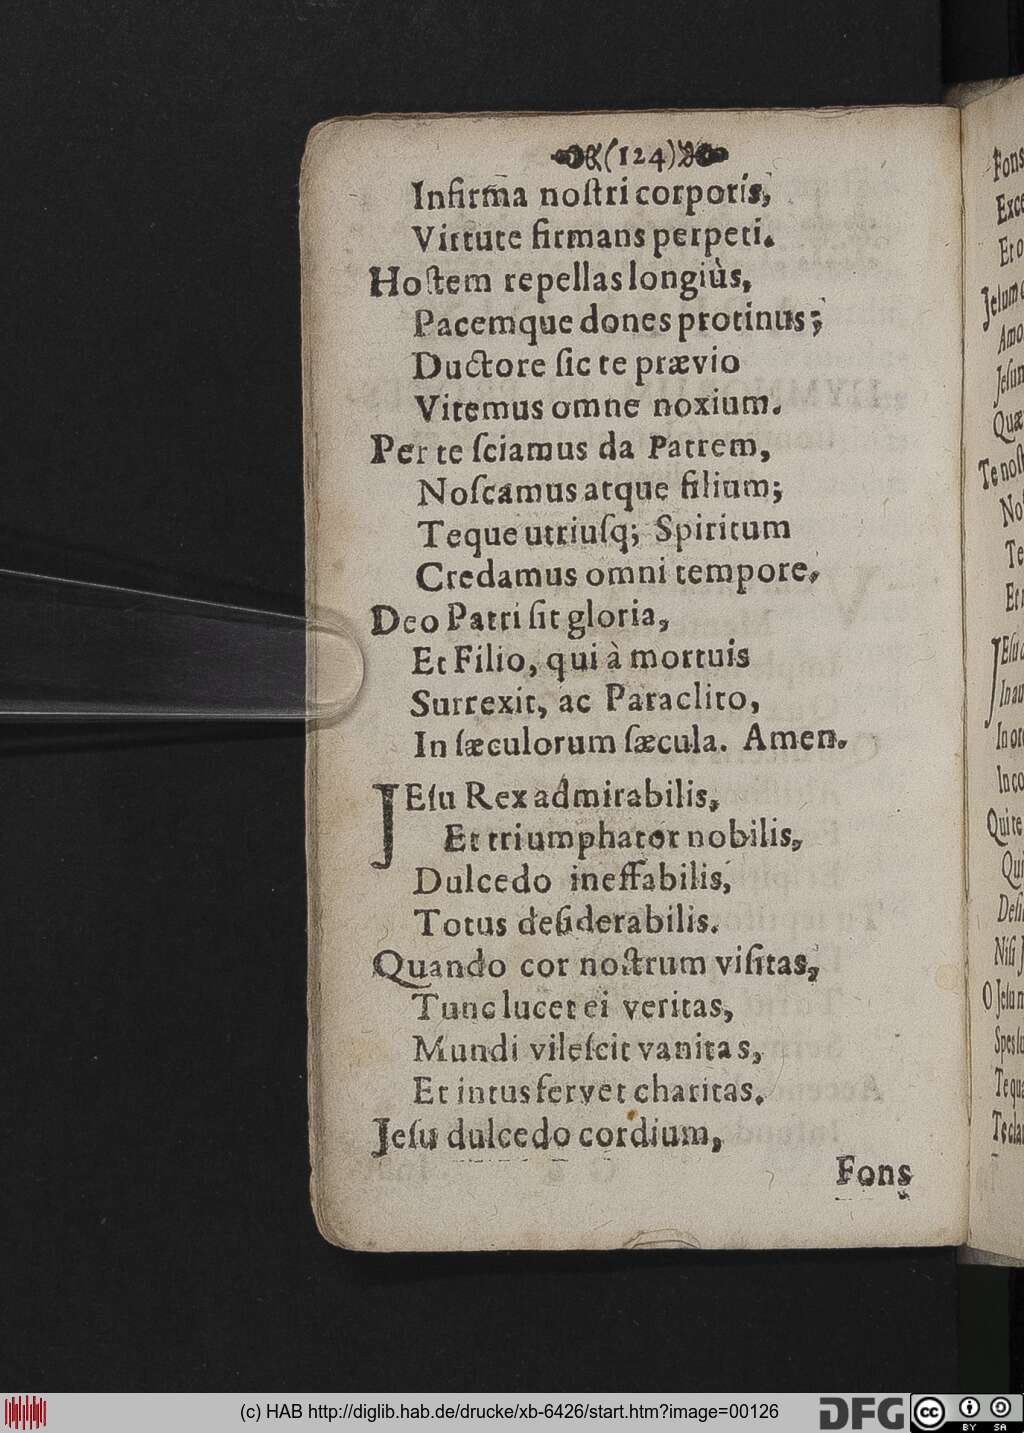 (124)
Infirma noſtri corporis,
Virtute firmans perpeti.
Hoſtem repellas longiùs,
Pacemque dones protinus;
Ductore ſic te prævio
Vitemus omne noxium.
Per te ſciamus da Patrem,
Noſcamus atque filium;
Teque utriuſq; Spiritum
Credamus omni tempore.
Deo Patri ſit gloria,
Et Filio, qui à mortuis
Surrexit, ac Paraclito,
In ſæculorum ſæcula. Amen.
JEſu Rex admirabilis,
Et triumphator nobilis,
Dulcedo ineffabilis,
Totus deſiderabilis.
Quando cor noſtrum viſitas,
Tunc lucet ei veritas,
Mundi vileſcit vanitas,
Et intus fervet charitas.
Jeſu dulcedo cordium,
Fons
Fons
Et o
Te
JEſu
Qui te
Qui
Niſi J
Te qua
(c) HAB http://diglib.hab.de/drucke/xb-6426/start.htm?image=00126
DFG
cc
BY SA